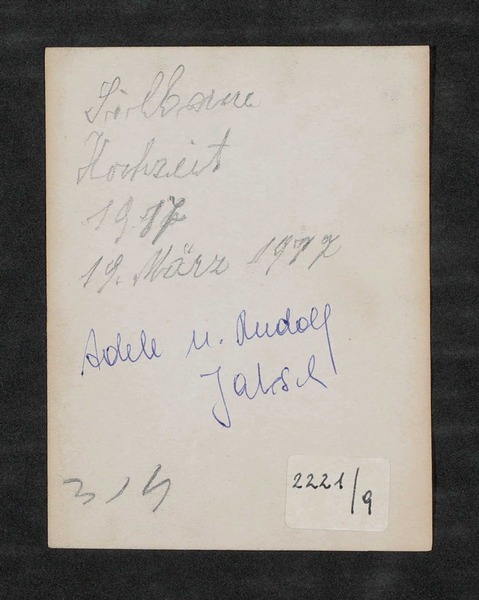 Silberne
Hochzeit
1977
19. März 1977
Adele u. Rudolf
Jaksch
314
2221/9